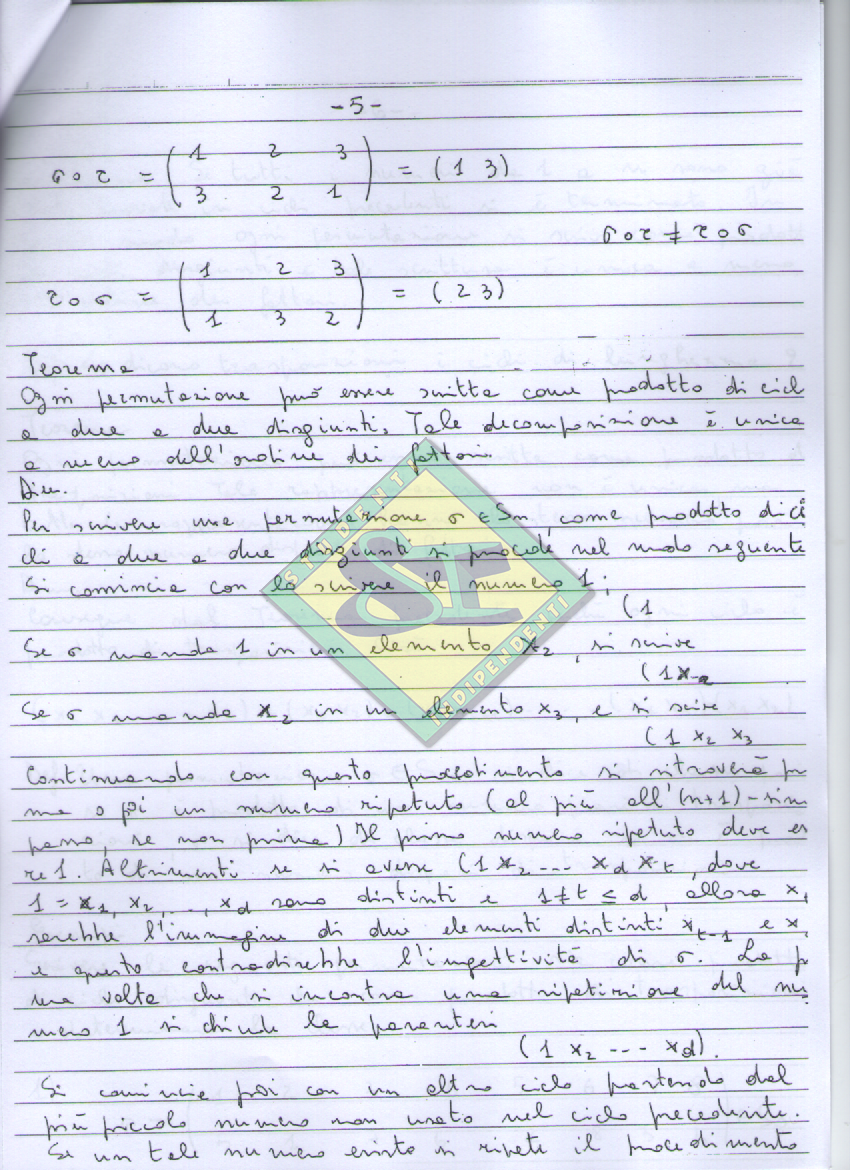 -5-
σ∘τ = ( 1 2 3
3 2 1 ) = (1 3)
σ∘τ ≠ τ∘σ
τ∘σ = ( 1 2 3
1 3 2 ) = (2 3)
Teorema
Ogni permutazione può essere scritta come prodotto di cicl
a due a due disgiunti. Tale decomposizione è unica
a meno dell'ordine dei fattori.
Dim.
Per scrivere una permutazione σ ∈ Sn come prodotto di ci
cli a due a due disgiunti si procede nel modo seguente
Si comincia con lo scrivere il numero 1;
(1
Se σ manda 1 in un elemento x₂, si scrive
(1 x₂
Se σ manda x₂ in un elemento x₃, e si scive
(1 x₂ x₃
Continuando con questo procedimento si ritroverà pr
ma o poi un numero ripetuto (al più all'(n+1)-sim
passo, se non prima) Il primo numero ripetuto deve es
re 1. Altrimenti se si avesse (1 x₂ --- x_d x_t, dove
1 = x₁, x₂, ..., x_d sono distinti e 1 ≠ t ≤ d, allora x
sarebbe l'immagine di due elementi distinti x_{t-1} e x
e questo contradirebbe l'ingettività di σ. La p
ma volta che si incontra una ripetizione del nu
mero 1 si chiude la parentesi
(1 x₂ --- x_d).
Si comincia poi con un altro ciclo partendo dal
più piccolo numero non usato nel ciclo precedente.
Se un tale numero esiste si ripete il procedimento
STUDENTI
SI
INDIPENDENTI